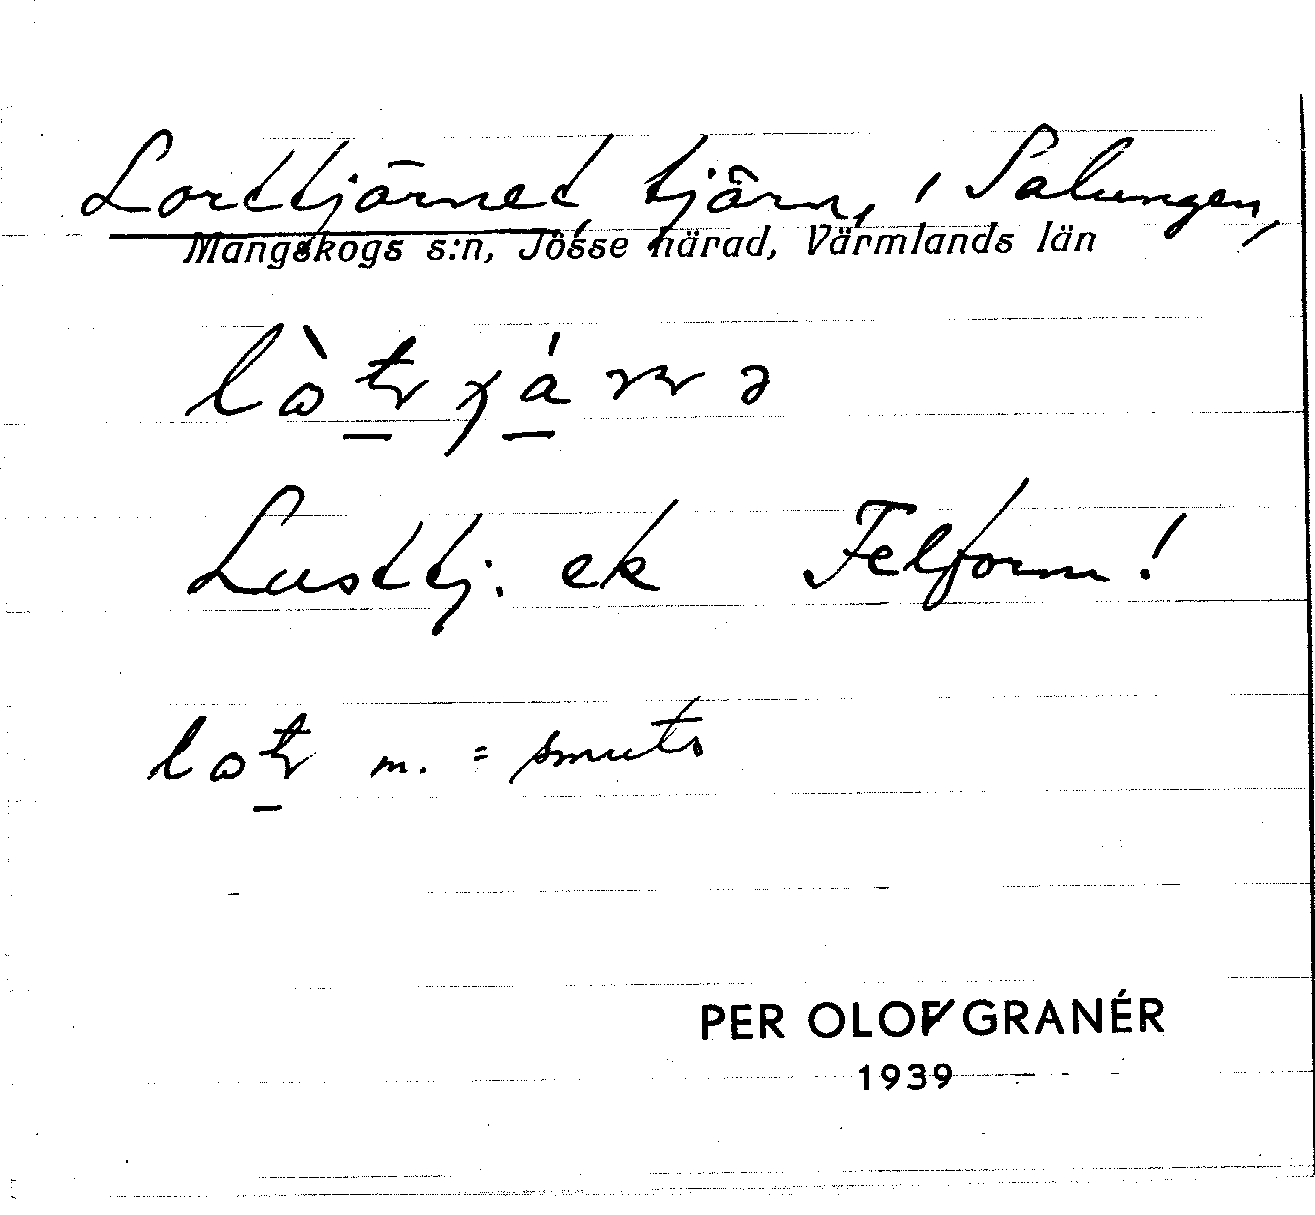 Lorttjärnet, tjärn, i Salungen,
Mangskogs s:n, Jösse härad, Värmlands län
Lusttj. ek Felform!
m. = smuts
PER OLOF GRANÉR
1939